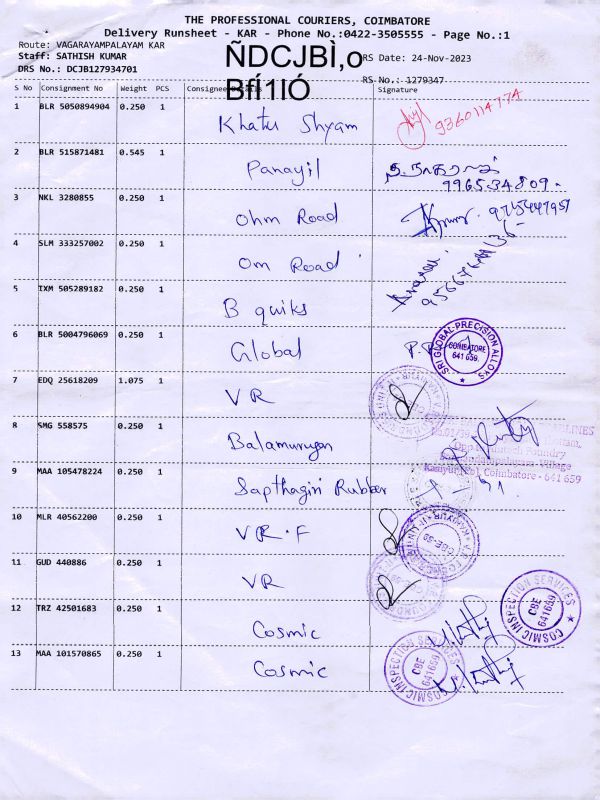 THE PROFESSIONAL COURIERS, COIMBATORE
Delivery Runsheet - KAR - Phone No.:0422-3505555 - Page No.:1
Route: VAGARAYAMPALAYAM KAR
Staff: SATHISH KUMAR
DRS No.: DCJB127934701
ÑDCJBÌ,o
BfÍ1IÓ
RS Date: 24-Nov-2023
RS No.: 1279347
S No Consignment No Weight PCS Consignee Details Signature
1 BLR 5050894904 0.250 1 Khatu Shyam 9360114774
2 BLR 515871481 0.545 1 Panayil 996534809.
3 NKL 3280855 0.250 1 Ohm Road
4 SLM 333257002 0.250 1 Om Road
5 TXM 505289182 0.250 1 B quiks
6 BLR 5004796069 0.250 1 Global
SRI GLOBAL PRECISION ALLOYS
COIMBATORE
641 659.
7 EDQ 25618209 1.075 1 VR
8 SMG 558575 0.250 1 Balamurugan
Foundry
Village
Coimbatore - 641 659
9 MAA 105478224 0.250 1 Sapthagiri Rubber
10 MLR 40562200 0.250 1 VR.F
11 GUD 440886 0.250 1 VR
12 TRZ 42501683 0.250 1 Cosmic
COSMIC INSPECTION SERVICES
CBE
641659
13 MAA 101570865 0.250 1 Cosmic
COSMIC INSPECTION SERVICES
CBE
641659